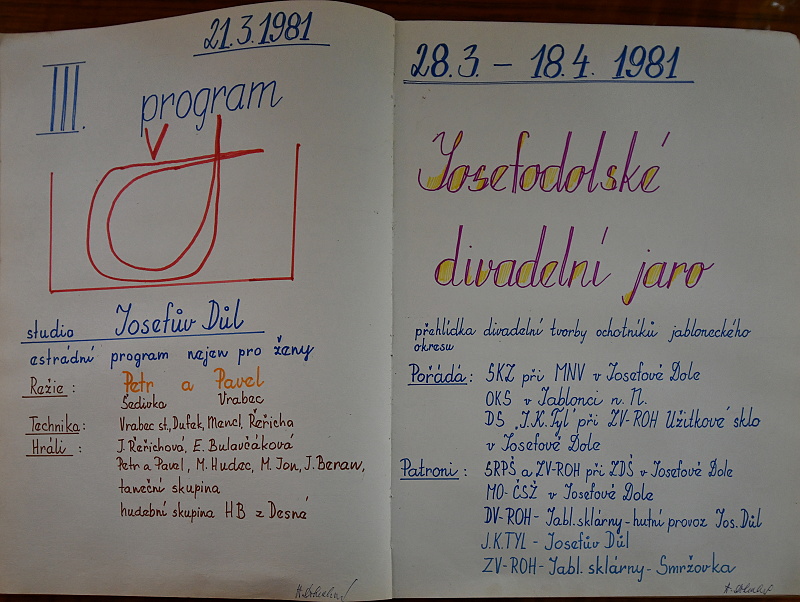 21.3.1981
III. program
studio Josefův Důl
estrádní program nejen pro ženy
Režie: Petr a Pavel
Šedivka Vrabec
Technika: Vrabec st., Dufek, Mencl, Řeřicha
Hráli: J. Řeřichová, E. Bulavčáková
Petr a Pavel, M. Hudec, M. Jon, J. Beran,
taneční skupina
hudební skupina HB z Desné
28.3. – 18.4. 1981
Josefodolské
divadelní jaro
přehlídka divadelní tvorby ochotníků jabloneckého
okresu
Pořádá: SKZ při MNV v Josefově Dole
OKS v Jablonci n. N.
DS "J.K.Tyl" při ZV-ROH Užitkové sklo
v Josefově Dole
Patroni: SRPŠ a ZV-ROH při ZDŠ v Josefově Dole
MO-ČSŽ v Josefově Dole
DV-ROH-Jabl.sklárny-hutní provoz Jos.Důl
J.K.TYL - Josefův Důl
ZV-ROH-Jabl. sklárny-Smržovka